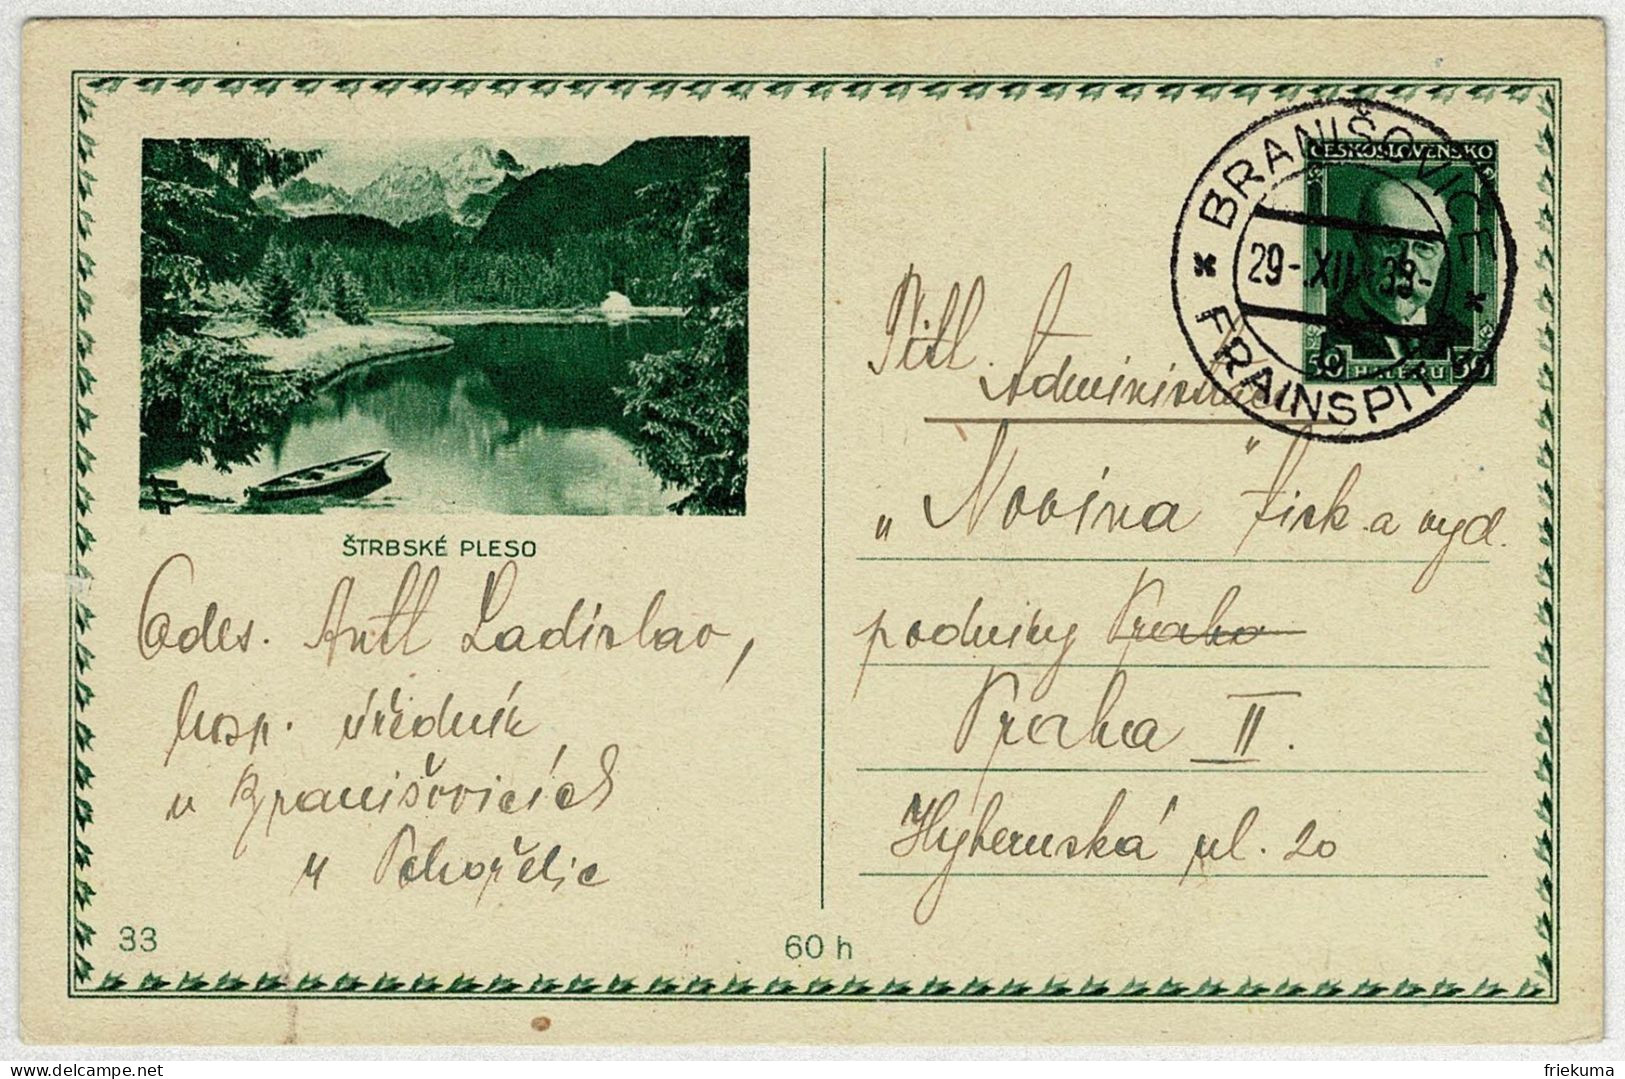 ŠTRBSKÉ PLESO
Odes. Antl Ladislav,
hosp. úředník
v Branišovicích
u Pohořelic
33
60 h
ČESKOSLOVENSKO
50 HALÉŘŮ 50
* BRANIŠOVICE *
29.-XII 33-
FRAINSPIT
Titl.
Administrace
„Novina" tisk. a vyd.
podniky Praha
Praha II.
Hybernská ul. 20
friekuma